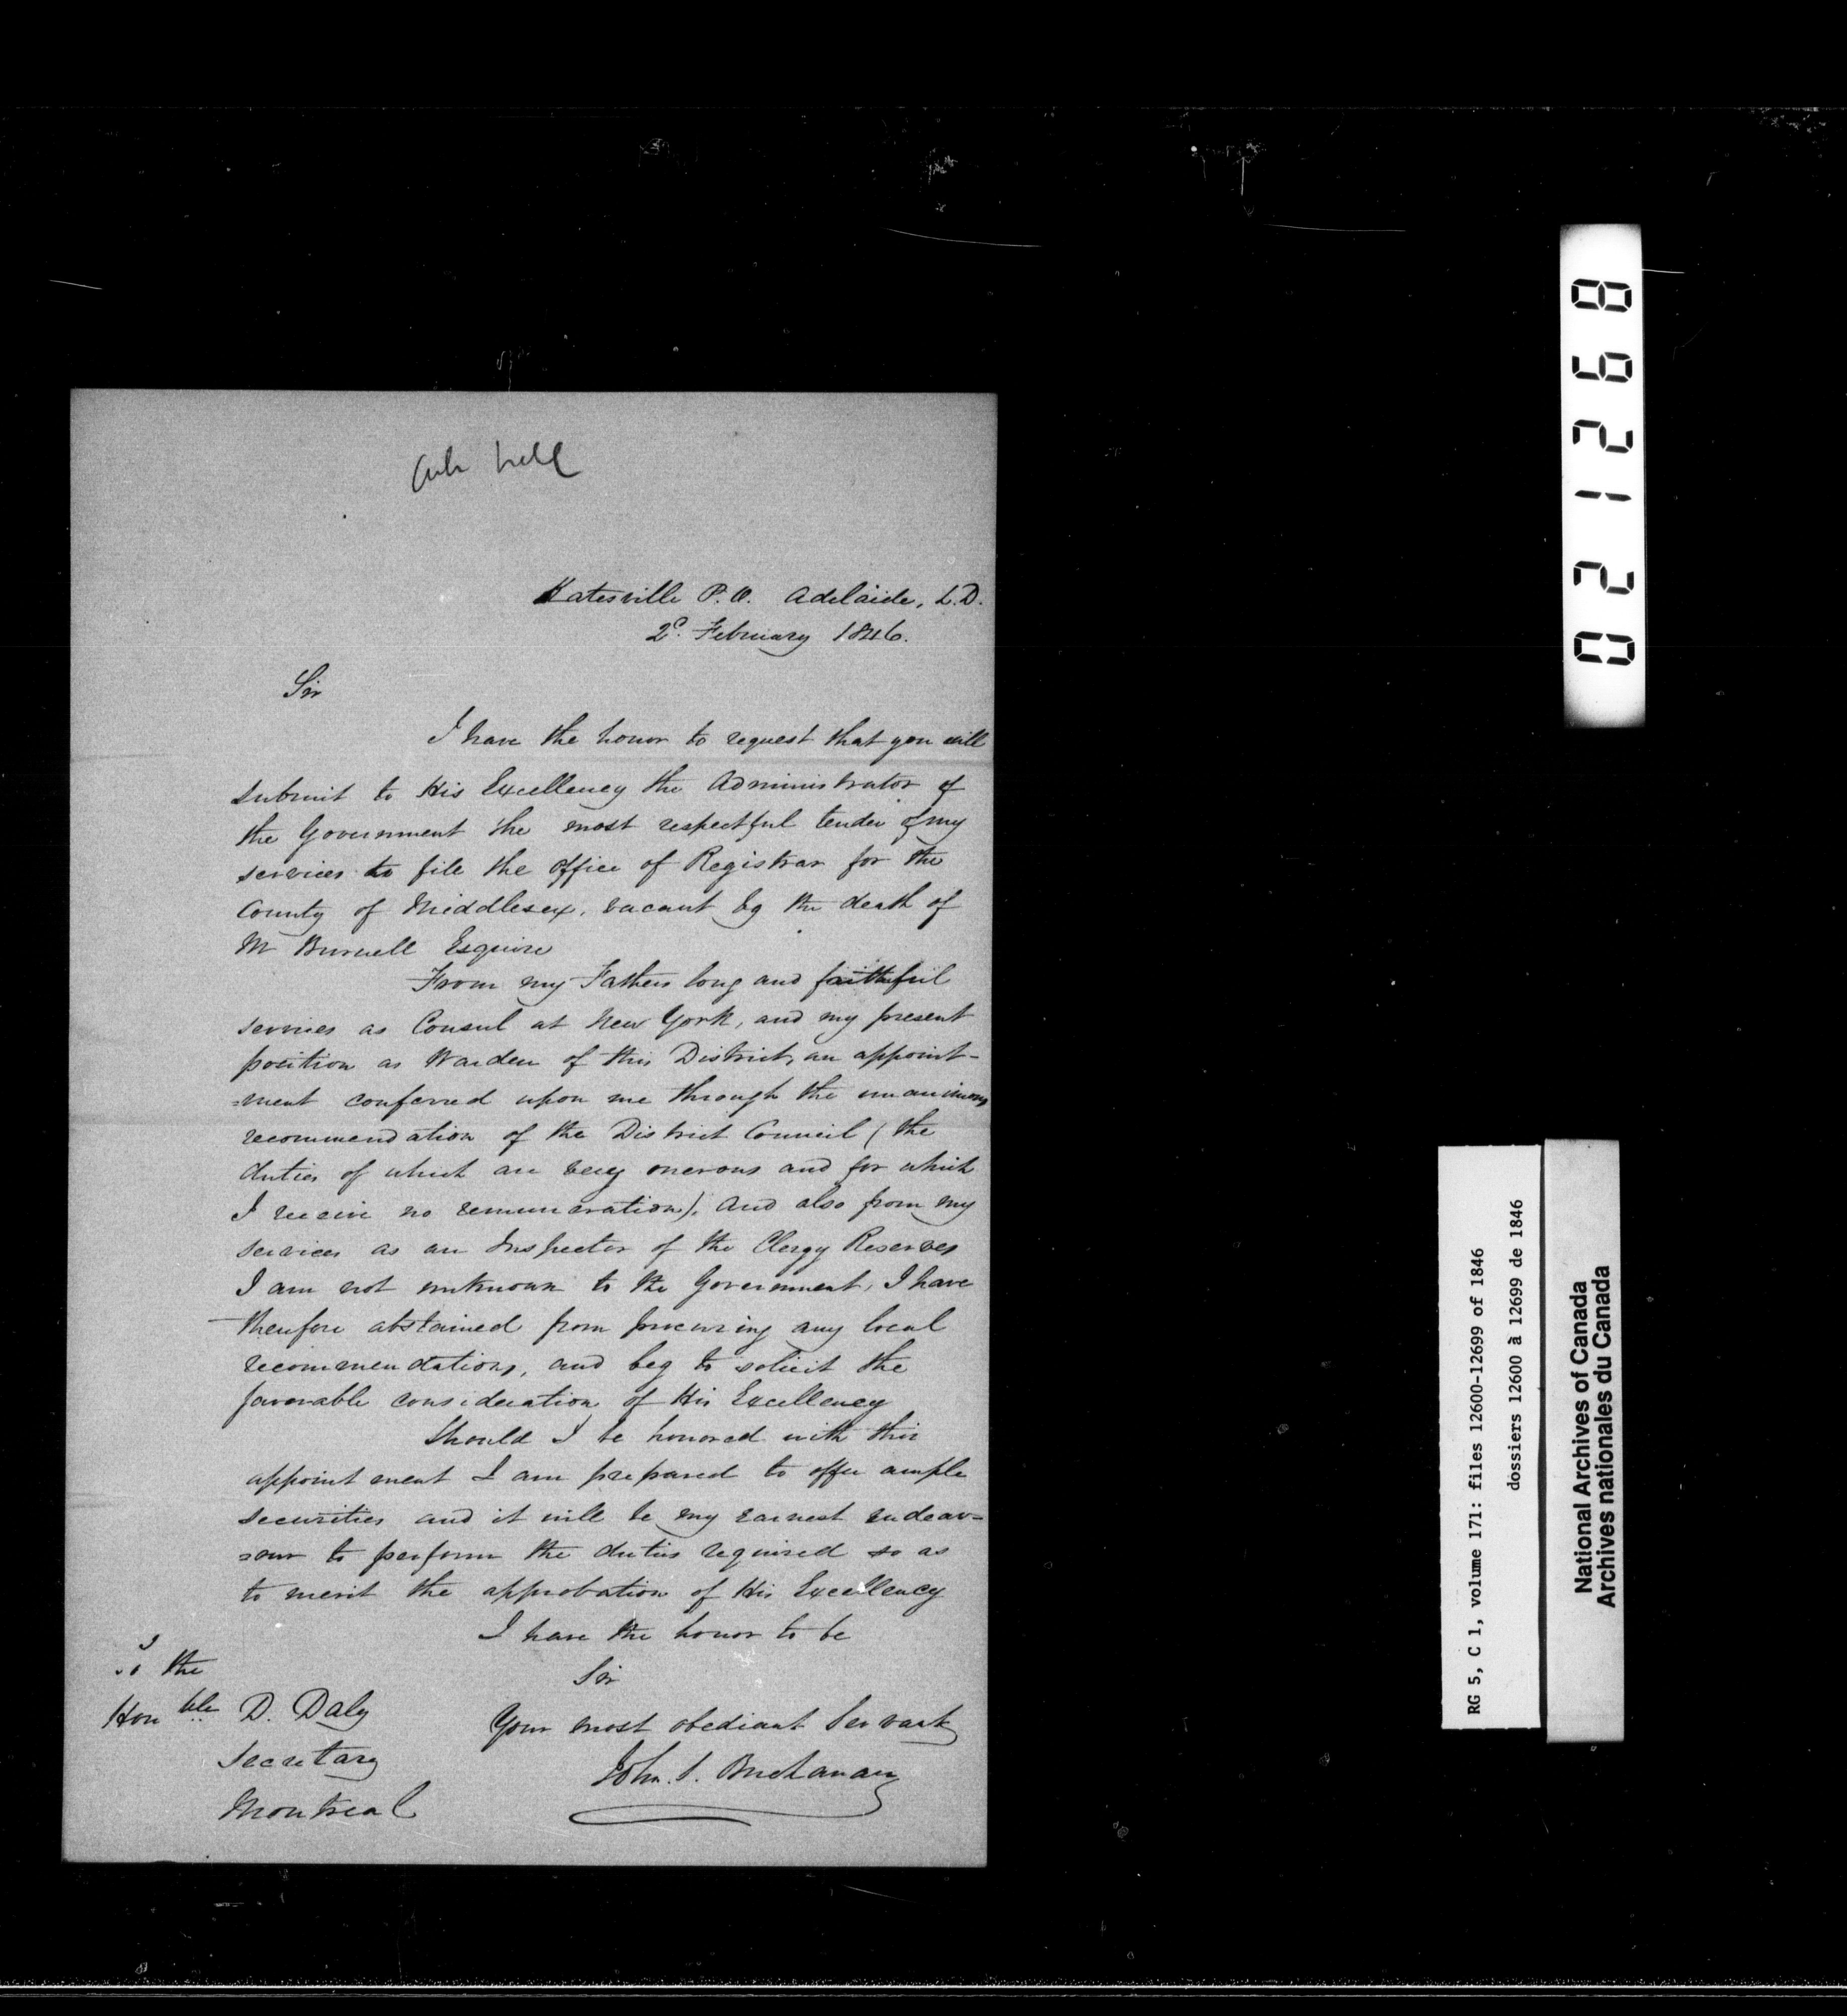 Katesville P.O. Adelaide, L.D.
2d. February 1846.
Sir
I have the honor to request that you will
submit to His Excellency the Administrator of
the Government the most respectful tender of my
services to file the office of Registrar for the
County of Middlesex, vacant by the death of
M Burwell Esquire
From my Fathers long and faithful
services as Consul at New York, and my present
position as Warden of this District, an appoint-
=ment conferred upon me through the unanimous
recommendation of the District Council (the
duties of which are very onerous and for which
I receive no remuneration), and also from my
services as an Inspector of the Clergy Reserves
I am not unknown to the Government, I have
therefore abstained from procuring any local
recommendations, and beg to solicit the
favorable consideration of His Excellency
Should I be honored with this
appointment I am prepared to offer ample
securities and it will be my earnest endeav=
=our to perform the duties required so as
to merit the approbation of His Excellency
I have the honor to be
Sir
Your most obediant Servant
John. S. Buchanan
To the
Honble D. Daly
Secretary
Montreal
021268
RG 5, C 1, volume 171: files 12600-12699 of 1846
dossiers 12600 à 12699 de 1846
National Archives of Canada
Archives nationales du Canada